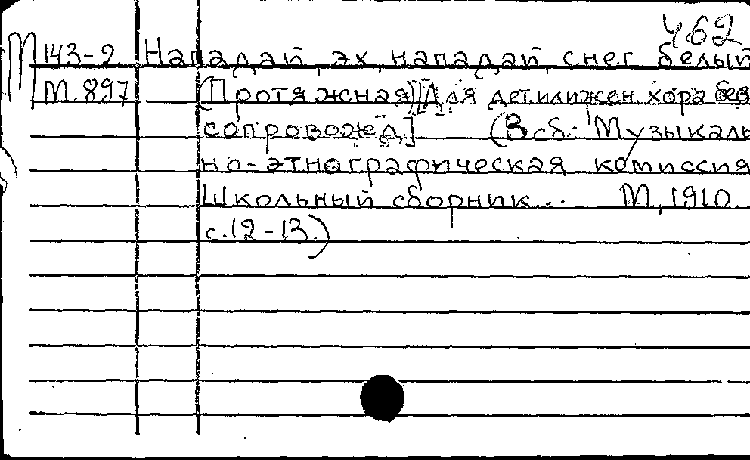 462
М 143-2 Нападай, эх, нападай, снег белый
М.897 (Протяжная) [Для дет. или жен. хора без
сопровожд.] (В сб.: Музыкаль
но-этнографическая комиссия
Школьный сборник... М., 1910.
с. 12-13.)